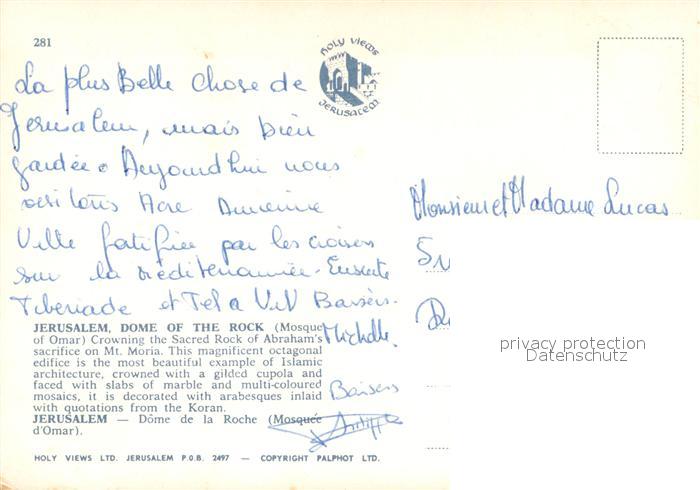 281
HOLY VIEWS
JERUSALEM
La plus Belle chose de
Jerusalem, mais bien
gardée. Aujourd'hui nous
visitons Acre Ancienne
Ville fortifiée par les croisés
sur la méditerannée. Ensuite
Tiberiade et Tel a Viv Baisers.
Michelle.
Baisers
Monsieur et Madame Lucas
JERUSALEM, DOME OF THE ROCK (Mosque
of Omar) Crowning the Sacred Rock of Abraham's
sacrifice on Mt. Moria. This magnificent octagonal
edifice is the most beautiful example of Islamic
architecture, crowned with a gilded cupola and
faced with slabs of marble and multi-coloured
mosaics, it is decorated with arabesques inlaid
with quotations from the Koran.
JERUSALEM — Dôme de la Roche (Mosquée
d'Omar).
HOLY VIEWS LTD. JERUSALEM P.O.B. 2497 — COPYRIGHT PALPHOT LTD.
privacy protection
Datenschutz